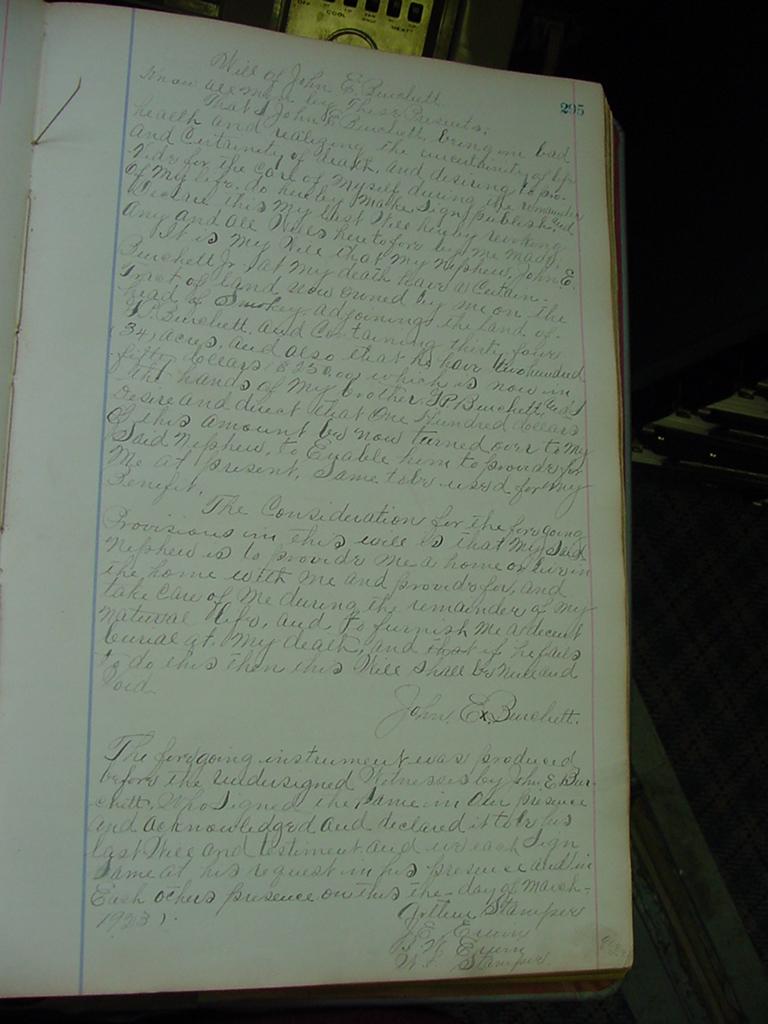 295
Will of John E. Burchett.
Know all Men by These Presents;
That I John E Burchett, being in bad
health and realizing the uncertainity of life
and Certainity of death, and desiring to pro-
vide for the care of myself during the remainder
of my life, do hereby make, sign, publish, and
declare this my last Will hereby revoking
any and all Wills heretofore by me made.
It is my Will that my Nephew, John E.
Burchett Jr, at my death have a Certain-
tract of land now owned by me on the
head of Smokey adjoining the land of-
Burchett, and Containing thirty four
(34) acres, and also that he have two hundred
fifty dollars $250.00 which is now in
the hands of my brother, Burchett, and I
desire and direct that One Hundred dollars
of this amount be now turned over to my
Said Nephew, to Enable him to provide for
Me at present, Same to be used for my
Benefit.
The Consideration for the foregoing
Provisions in this will is that my Said
Nephew is to provide me a home or live in
the home with me and provide for, and
take care of me during the remainder of my
natural life, and to furnish me a decent
burial at my death, and that if he fails
to do this then this Will shall be Null and
Void.
John Ex Burchett.
The foregoing instrument was produced
before the undersigned Witnesses by John E Bur-
chett, Who Signed the Same in Our presence
and acknowledged and declared it to be his
last Will and testiment and we each Sign
Same at his request in his presence and in
Each others presence on this the - day of March -
1923).
Arthur Stamper
Erwin
Erwin
Stamper